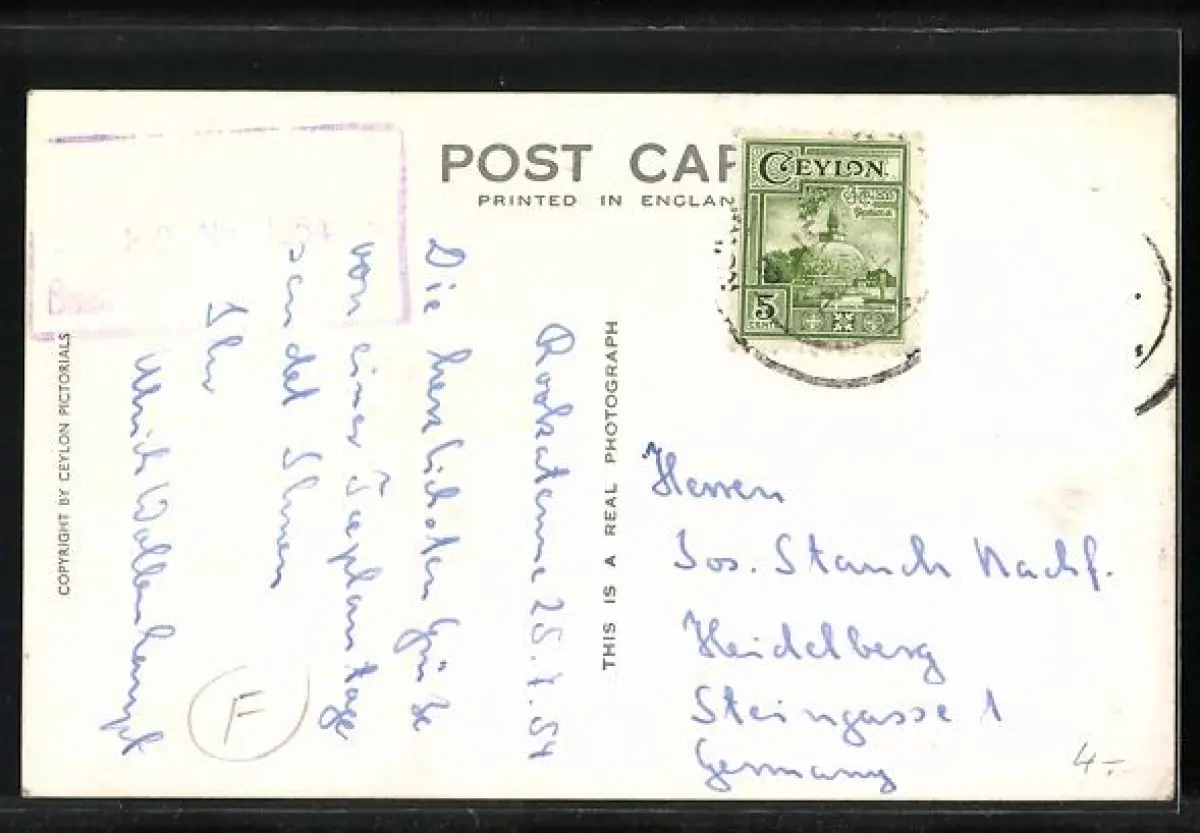 POST CAR
PRINTED IN ENGLAN
CEYLON
5
CENTS
THIS IS A REAL PHOTOGRAPH
COPYRIGHT BY CEYLON PICTORIALS
25.7.54
Die herzlichsten Grüße
von einer Teeplantage
sendet Ihnen
Ihr
Ulrich Wollenhaupt
Herren
Jos. Stauch Nachf.
Heidelberg
Steingasse 1
Germany
F
4.-